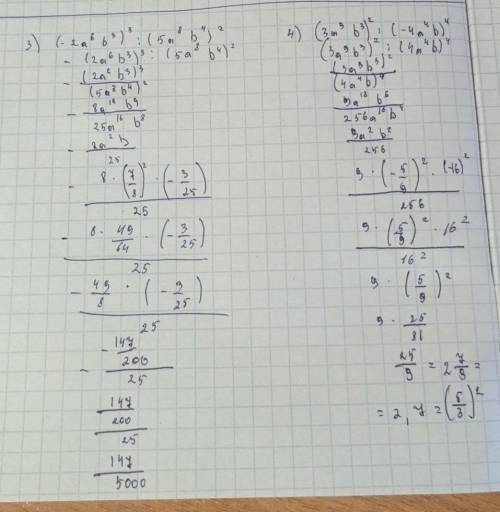 3) (-2a⁶ b³)³ : (5a⁸ b⁴)²
- (2a⁶ b³)³ : (5a⁸ b⁴)²
- (2a² b³)³ / (5a⁸ b⁴)²
- 8a¹⁸ b⁹ / 25a¹⁶ b⁸
- 8a² b / 25
- 8 · (7/8)² · (-3/25) / 25
- 8 · 49/64 · (-3/25) / 25
- 49/8 · (-3/25) / 25
- -147/200 / 25
147/200 / 25
147/5000
4) (3a⁹ b³)² : (-4a⁴ b)⁴
(3a⁹ b³)² : (4a⁴ b)⁴
(3a⁹ b³)² / (4a⁴ b)⁴
9a¹⁸ b⁶ / 256a¹⁶ b⁴
9a² b² / 256
9 · (-5/9)² · (-16)² / 256
9 · (5/9)² · 16² / 16²
9 · (5/9)²
9 · 25/81
25/9 = 2 7/9 =
= 2,7 = (5/3)²